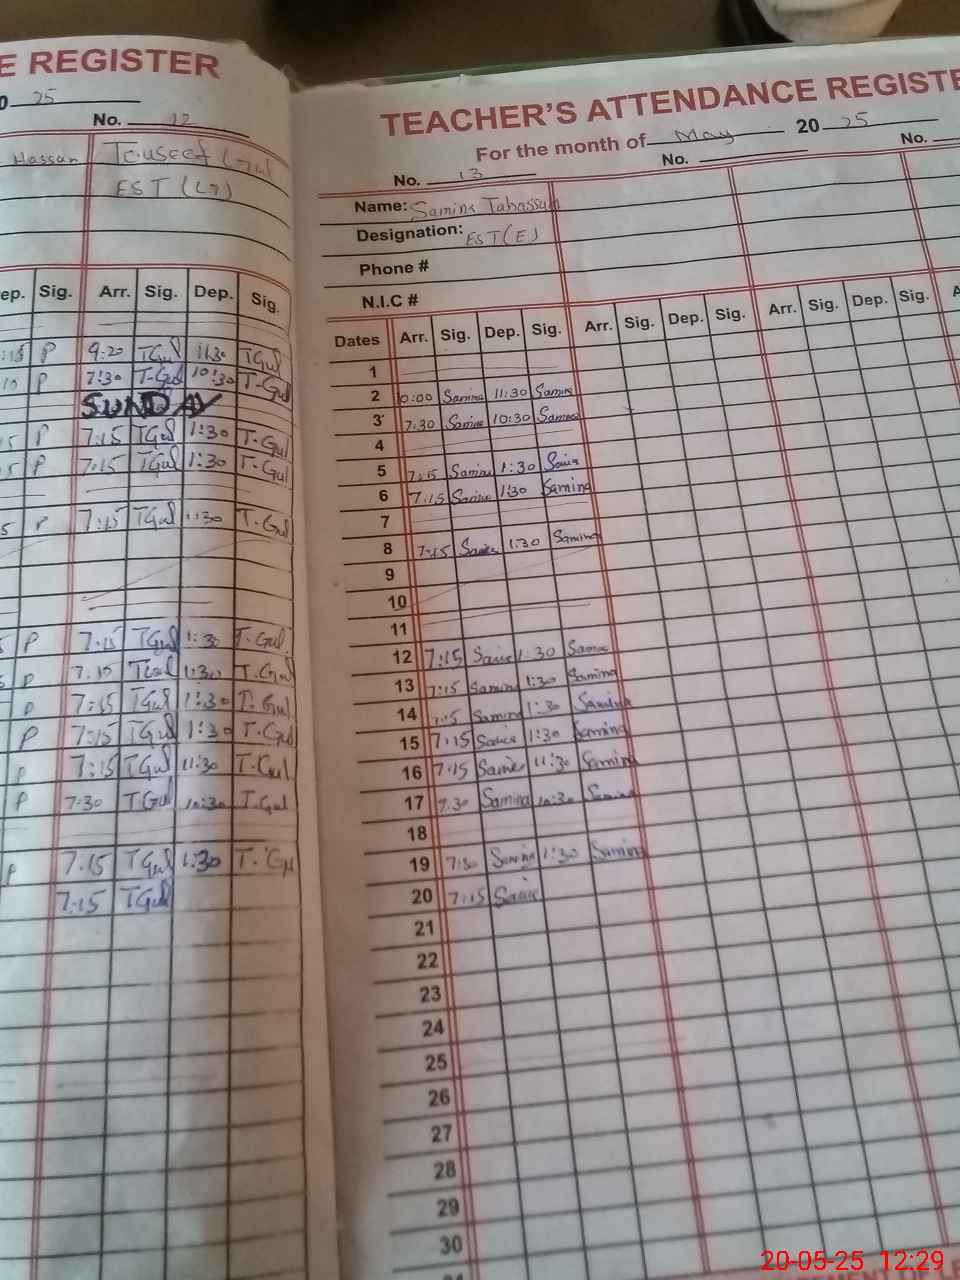 E REGISTER
0 25
No. 12
Hassan Touseef Gul
EST (
ep. Sig. Arr. Sig. Dep. Sig.
:15 P 9:20 TGul 11:30 TGul
P 7:30 T-Gul 10:30 T-Gul
SUNDAY
P 7:15 TGul 1:30 T-Gul
P 7:15 TGul 1:30 T-Gul
P 7:15 TGul 1:30 T-Gul
P 7:15 TGul 1:30 T-Gul
P 7:15 TGul 1:30 T-Gul
P 7:15 TGul 1:30 T-Gul
P 7:15 TGul 1:30 T-Gul
P 7:15 TGul 11:30 T-Gul
P 7:30 TGul 10:30 T.Gul
P 7:15 TGul 1:30 T.Gu
7:15 TGul
TEACHER'S ATTENDANCE REGISTE
For the month of May 20 25
No. 13 No. No.
Name: Samina Tabassum
Designation: EST(E)
Phone #
N.I.C #
Dates Arr. Sig. Dep. Sig. Arr. Sig. Dep. Sig. Arr. Sig. Dep. Sig. A
1
2 0:00 Samina 11:30 Samina
3 7:30 Samina 10:30 Samina
4
5 7:15 Samina 1:30 Samina
6 7:15 Samina 1:30 Samina
7
8 7:15 Samina 1:30 Samina
9
10
11
12 7:15 Samina 1:30 Samina
13 7:15 Samina 1:30 Samina
14 7:15 Samina 1:30 Samina
15 7:15 Samina 1:30 Samina
16 7:15 Samina 11:30 Samina
17 7:30 Samina 10:30 Samina
18
19 7:30 Samina 1:30 Samina
20 7:15 Samina
21
22
23
24
25
26
27
28
29
30
20-05-25 12:29